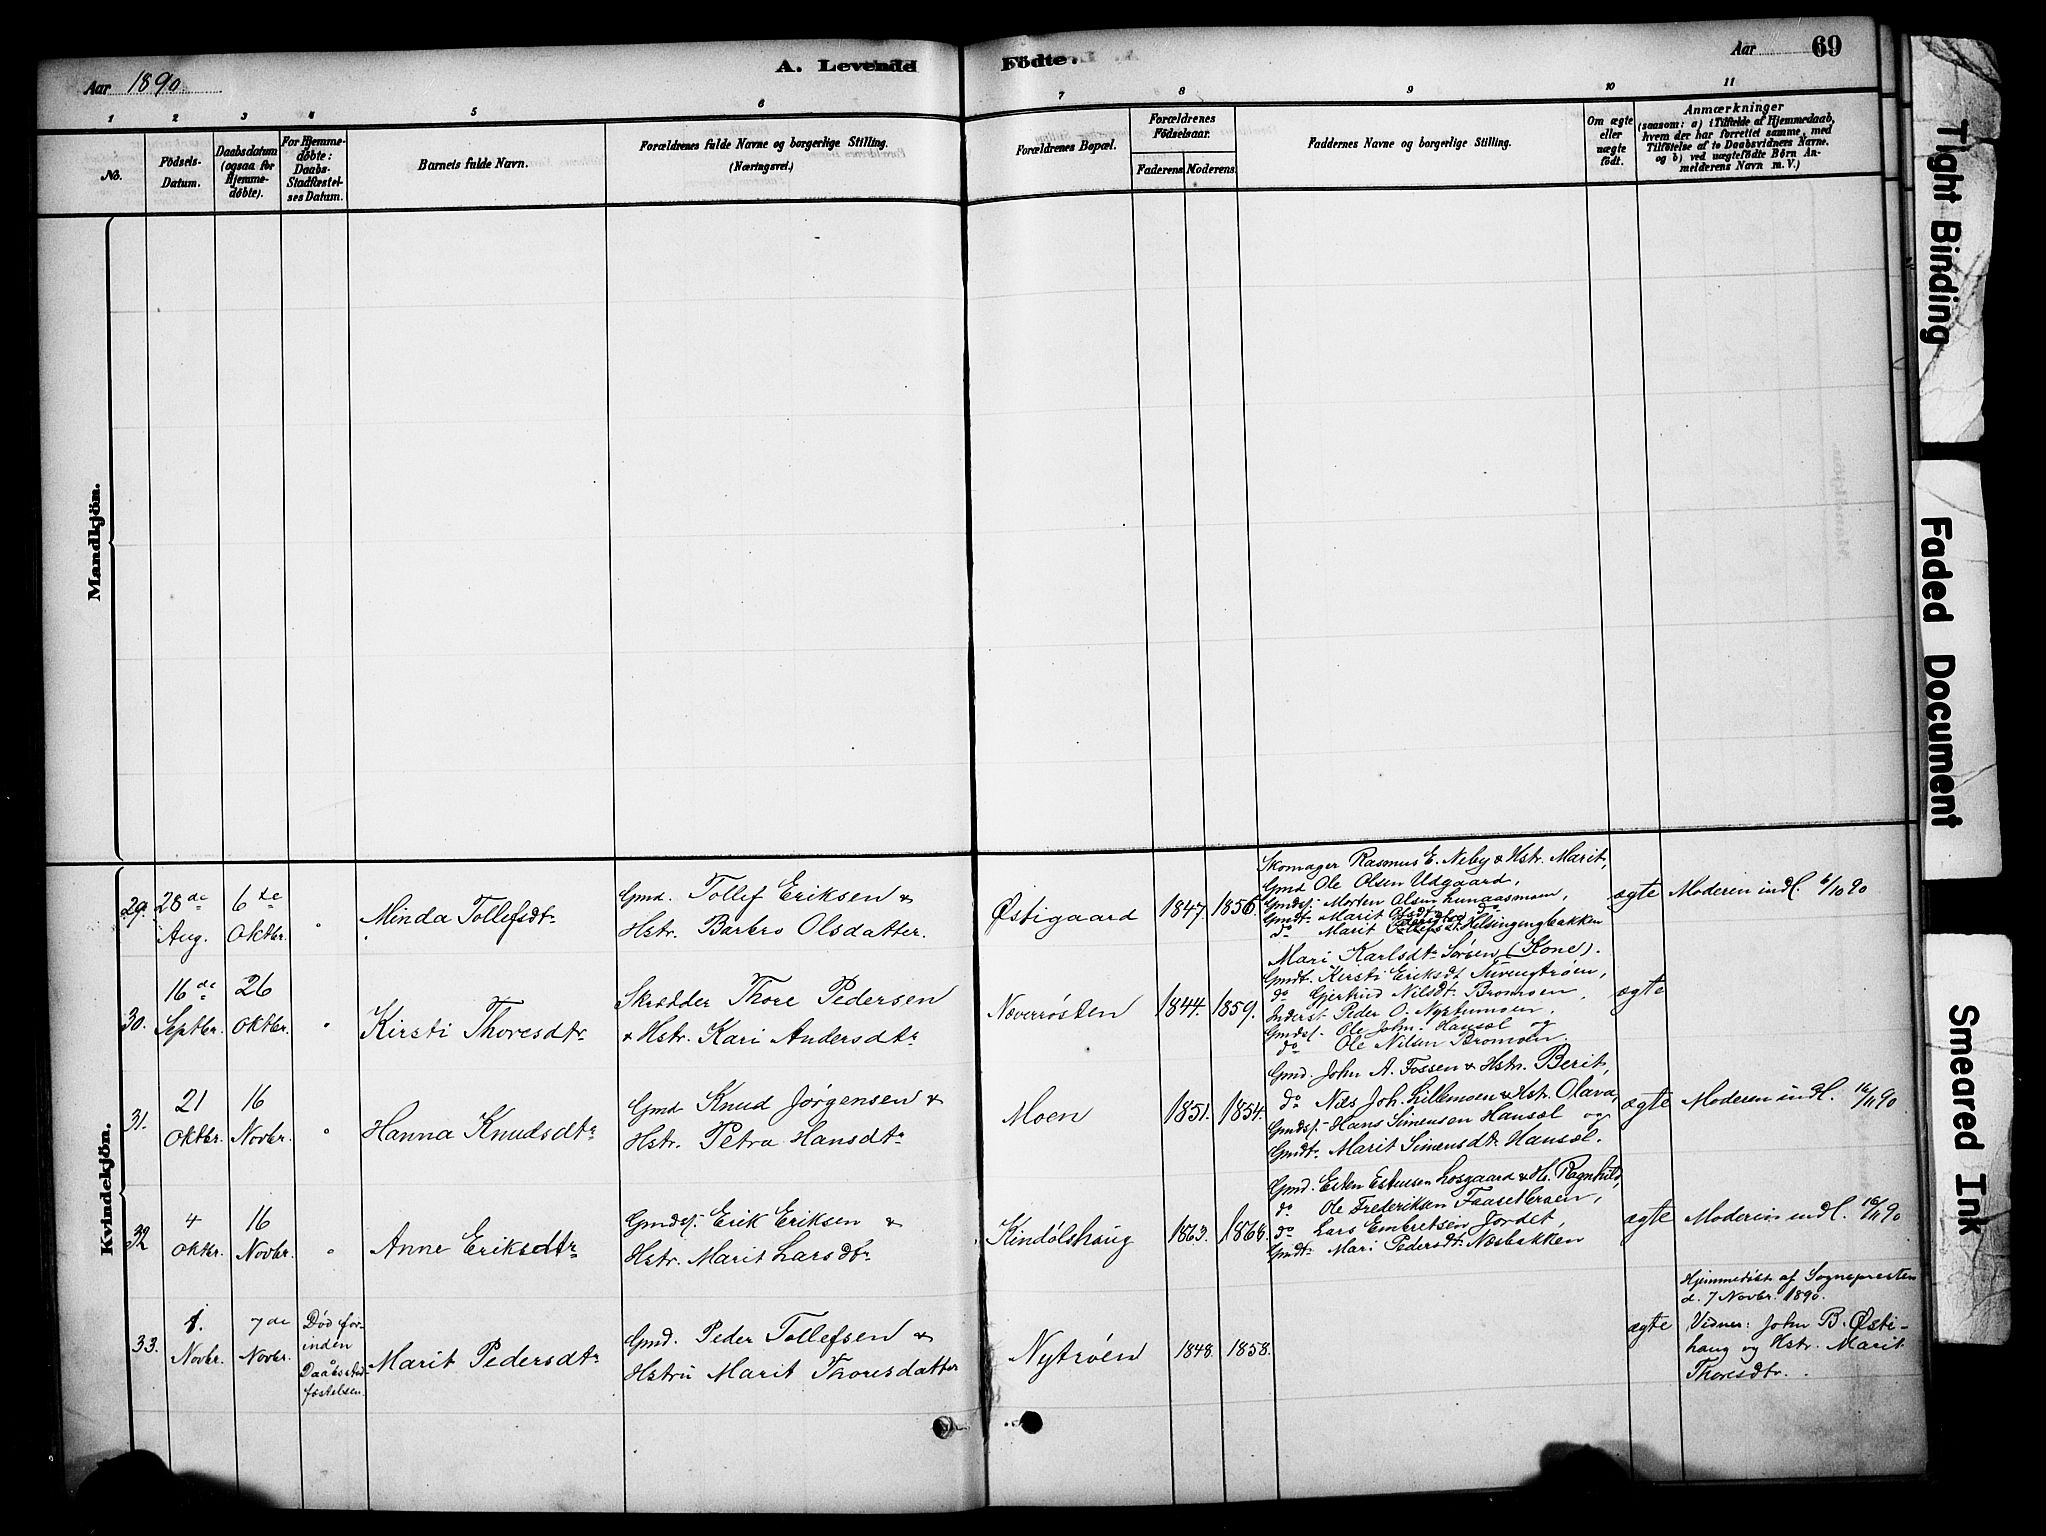 Aar 1890.
A. Levende Födte.
Aar
69
1
2
3
4
5
6
7
8
9
10
11
No.
Födsels-
Datum.
Daabsdatum
(ogsaa for
Hjemme-
döbte).
For Hjemme-
döbte:
Daabs-
Stadfæstel-
ses Datum.
Barnets fulde Navn.
Forældrenes fulde Navne og borgerlige Stilling.
(Næringsvei.)
Forældrenes Bopæl.
Forældrenes
Födselsaar.
Faderens
Moderens.
Faddernes Navne og borgerlige Stilling.
Om ægte
eller
uægte
födt.
Anmærkninger
(saasom: a) i Tilfælde af Hjemmedaab,
hvem der har forrettet samme, med
Tilföielse af to Daabsvidners Navne,
og b) ved uægtefödte Börn An-
melderens Navn m.V.)
Mandkjön.
Kvindekjön.
29.
28de
Aug.
6te
Oktbr.
"
Minda Tollefsdtr
Gmd. Tollef Eriksen &
Hstr. Barbro Olsdatter.
Østigaard
1847.
1856.
Skomager Rasmus E. Neby & Hstr. Marit,
Gmd Ole Olsen Udgaard,
Gmdsf. Morten Olsen
Gmdt. Marit Olsdtr
do Marit
ægte
Moderen indl. 6/10 90
30.
16de
Septbr.
26
Oktbr.
"
Kirsti Thoresdtr
Skrædder Thore Pedersen
& Hstr. Kari Andersdtr
Næverrøsten
1844.
1859.
Mari Karlsdtr Sørsen (Kone).
Gmdt. Kersti Eriksdt Tuvengtrøen,
do Gjertrud Nilsdt. Bromoen,
Inderst Peder O. Nystumoen,
Gmdsf. Ole John. Hansæl og
do Ole Nilsen Bromoen.
ægte
31.
21
Oktbr.
16
Novbr.
"
Hanna Knudsdtr
Gmd Knud Jørgensen &
Hstr. Petra Hansdtr
Moen
1851.
1854.
Gmd. John A. Fossen & Hstr. Berit,
do Nils Joh. Lillemoen & Hstr. Olava,
Gmdsf. Hans Simensen Hansæl og
Gmdtr Marit Simensdtr Hansæl.
ægte
Moderen indl. 16/11 90
32
4
Oktbr.
16
Novbr.
"
Anne Eriksdtr
Gmdsf. Erik Eriksen &
Hstr. Marit Larsdtr
Kindølshaug
1863.
1866.
Gmd. Esten Estensen Losgaard & H. Ragnhild,
do Ole Frederiksen Faasetbroen,
do Lars Embretsen Jordet,
Gmdtr Mari Pedersdtr Næsbakken
ægte
Moderen indl. 16/11 90
33.
1.
Novbr.
7de
Novbr.
Død for-
inden
Daabsstad-
fæstelsen.
Marit Pedersdtr
Gmd. Peder Tollefsen &
Hstru Marit Thoresdatter
Nytrøen
1848.
1858.
ægte
Hjemmedøbt af Sognepresten
d. 7 Novbr. 1890.
Vidner: John B. Østi-
haug og Hstr. Marit
Thoresdtr.
Tight Binding
Faded Document
Smeared Ink